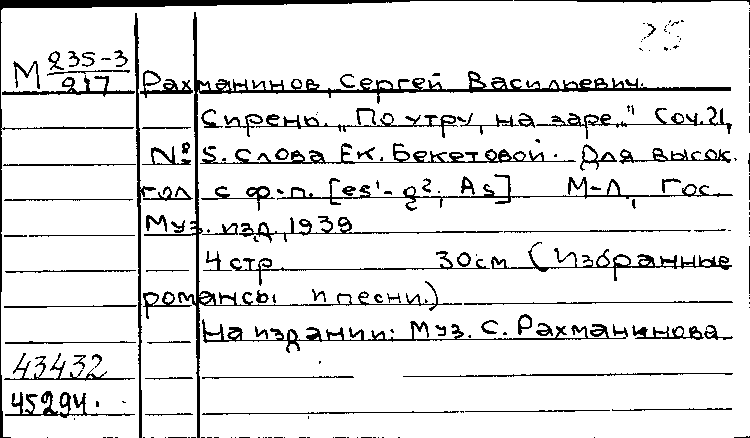 25
М 235-3/217 Рахманинов, Сергей Васильевич.
Сирень. „По утру, на заре..." Соч. 21,
№ 5. Слова Ек. Бекетовой. Для высок.
гол с ф-п. [es¹-g², As] М-Л, Гос.
Муз. изд, 1939
4 стр. 30см (Избранные
романсы и песни.)
На издании: Муз. С. Рахманинова
43432
45294.